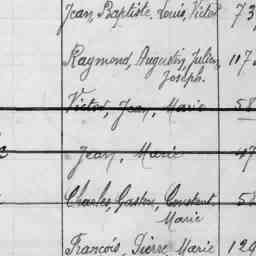 Jean, Baptiste, Louis, Victor 73
Raymond, Augustin, Julien, 117
Joseph.
Victor, Jean, Marie 58
Jean, Marie 47
Charles, Gaston, Constant, 58
Marie
François, Pierre, Marie 129